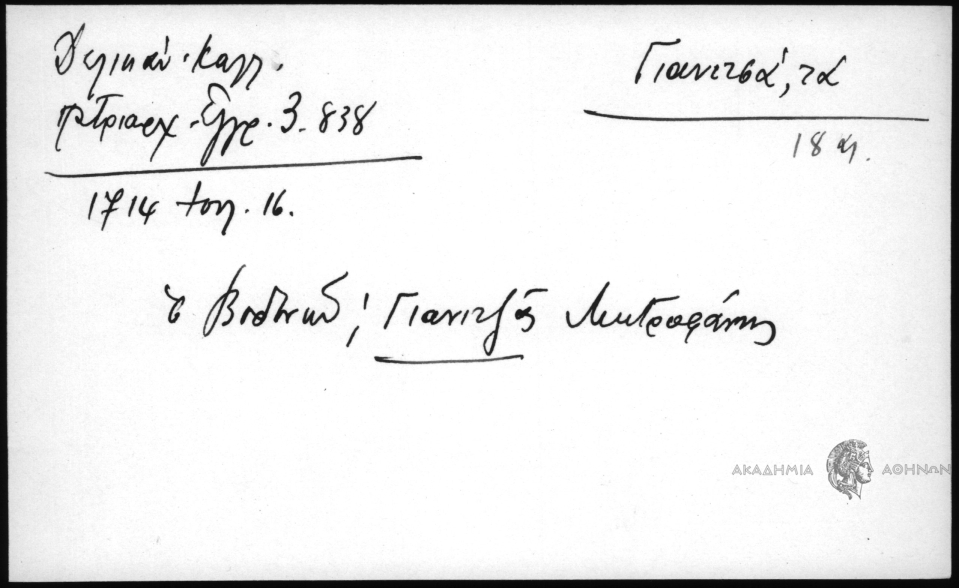 Δελικάν. Καλλ.
πατριαρχ. Έγγρ. 3. 838
1714 σελ. 16.
Γιαννιτσά, τά
18 αι.
ὁ Βοδενῶν, Γιαννιτζᾶς Μητροφάνης
ΑΚΑΔΗΜΙΑ ΑΘΗΝΩΝ